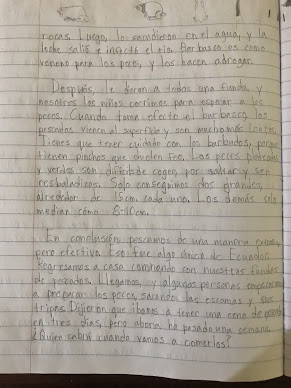 rocas. Luego, lo sumdieron en el agua, y la
leche salió e infectó el rio. Barbasco es como
veneno para los peces, y los hacen ahogar.
Después, le dieron a todos una funda, y
nosotros los niños corrimos para esperar a los
peces. Cuando toma efecto el barbasco, los
pescados vienen al superficie y son mucho más lentos.
Tienes que tener cuidado con los barbudos, porque
tienen pinchos que duelen feo. Los peces plateados
y verdes son difícil de coger, por saltar y ser
resbaladizos. Solo conseguimos dos grandes,
alrededor de 15cm cada uno. Los demás solo
median cómo 8-10cm.
En conclusión pescamos de una manera
pero efectiva. Eso fue algo único de Ecuador.
Regresamos a casa caminando con nuestras fundas
de pescados. Llegamos, y algunas personas empezaron
a preparar los peces, sacando las escamas y sus
tripas. Dijeron que ibamos a tener una cena de pescado
en tres días, pero ahora ha pasado una semana.
¿Quien sabrá cuando vamos a comerlos?